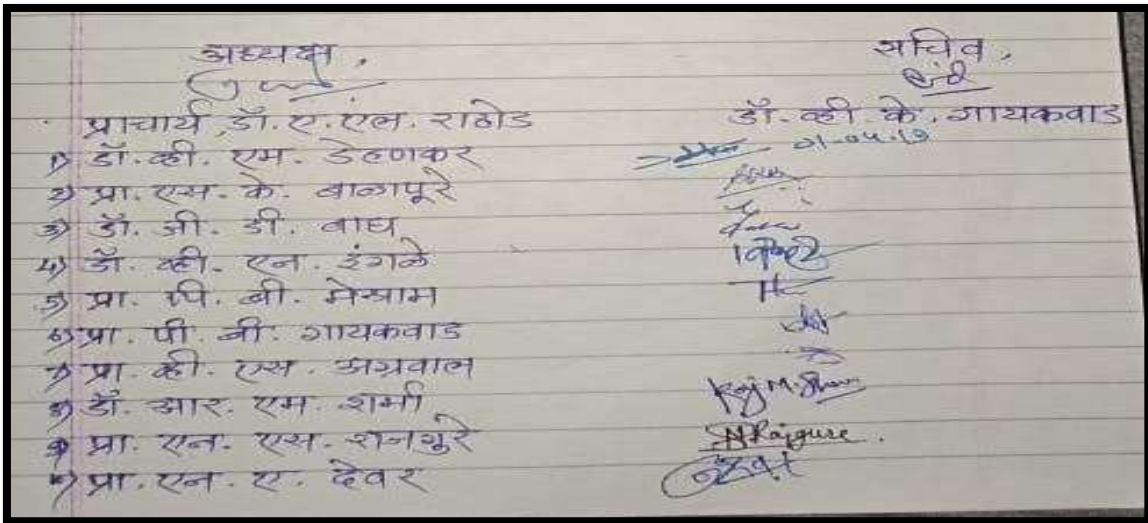 अध्यक्ष, सचिव,
प्राचार्य डॉ. ए. एल. राठोड डॉ. व्ही. के. गायकवाड
१) डॉ. व्ही. एम. डेहणकर
२) प्रा. एस. के. बाळापूरे
३) डॉ. जी. डी. वाघ
४) डॉ. व्ही. एन. इंगळे
५) प्रा. पी. बी. मेश्राम
६) प्रा. पी. बी. गायकवाड
७) प्रा. व्ही. एस. अग्रवाल
८) डॉ. आर. एम. शर्मा
९) प्रा. एन. एस. राजगूरे NRajgure.
प्रा. एन. ए. देवर